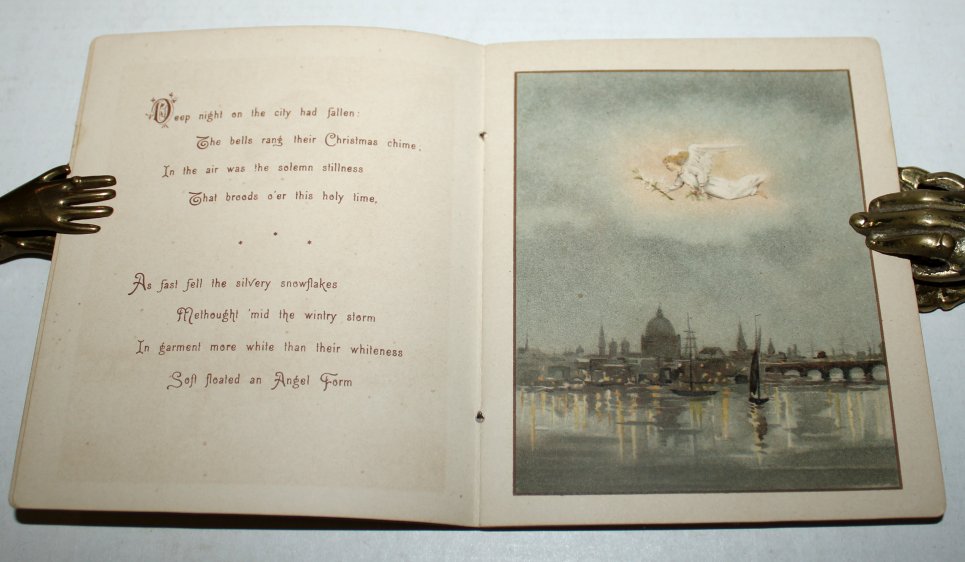 Deep night on the city had fallen:
The bells rang their Christmas chime,
In the air was the solemn stillness
That broods o'er this holy time.
* * *
As fast fell the silvery snowflakes
Methought 'mid the wintry storm
In garment more white than their whiteness
Soft floated an Angel Form